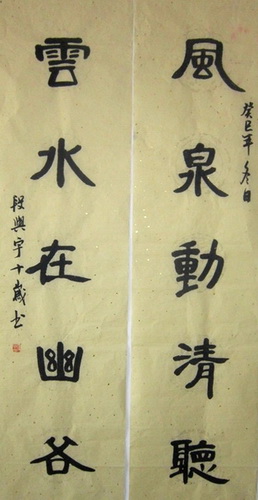 風泉動清聽
癸巳年冬日
雲水在幽谷
段興宇十歲书